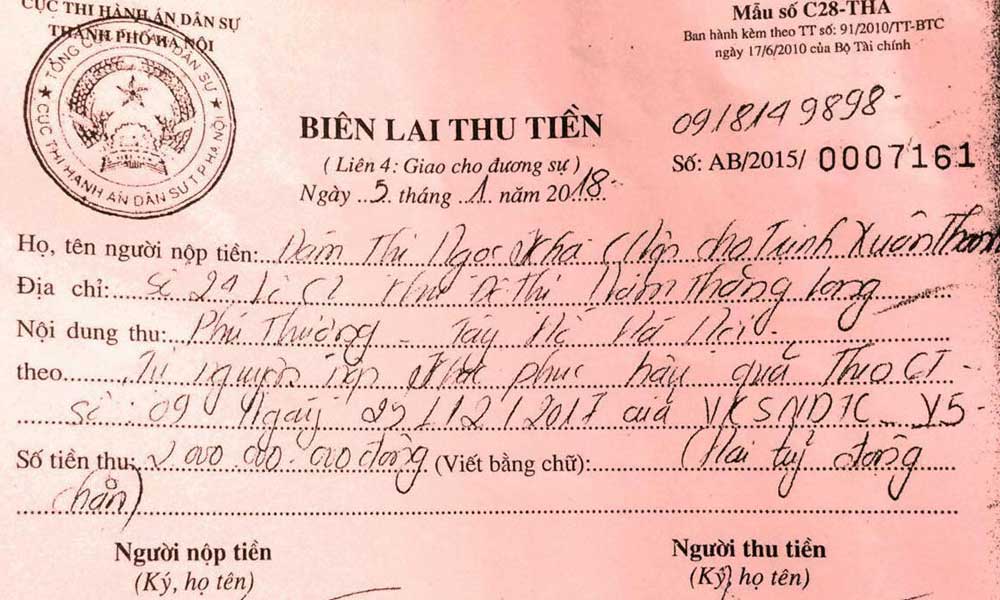 CỤC THI HÀNH ÁN DÂN SỰ
THÀNH PHỐ HÀ NỘI
TỔNG CỤC DÂN SỰ
CỤC THI HÀNH ÁN DÂN SỰ T.P HÀ NỘI
Mẫu số C28-THA
Ban hành kèm theo TT số: 91/2010/TT-BTC
ngày 17/6/2010 của Bộ Tài chính
BIÊN LAI THU TIỀN
(Liên 4: Giao cho đương sự)
Ngày 5 tháng 1 năm 2018
0918149898
Số: AB/2015/ 0007161
Họ, tên người nộp tiền: Thị Ngọc (Nộp cho Trịnh Xuân Thanh
Địa chỉ: Số 24 Khu Đô Thị Nam Thăng Long
Nội dung thu: Phú Thượng - Tây Hồ Hà Nội -
theo Tự nguyện nộp khắc phục hậu quả Theo CT
số: 09 Ngày 25/12/2017 của VKSNDTC V5 -
Số tiền thu: 2000.000.000 đồng (Viết bằng chữ): (Hai tỷ đồng
chẵn)
Người nộp tiền
(Ký, họ tên)
Người thu tiền
(Ký, họ tên)